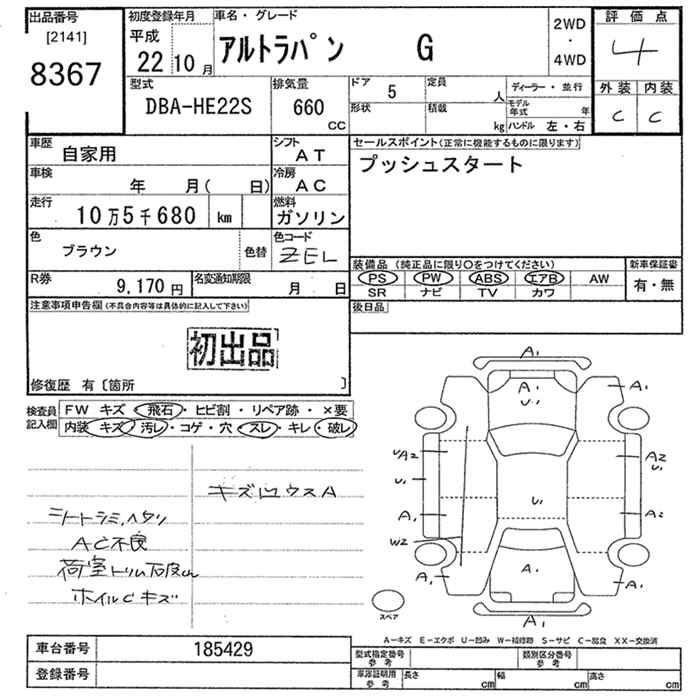 出品番号 初度登録年月 車名・グレード 評価点
[2141] 平成 アルトラパン G 2WD・4WD 4
8367 22年10月
型式 排気量 ドア 5 定員 人 ディーラー・並行 外装 内装
DBA-HE22S 660 CC 形状 積載 kg モデル年式 年 C C
ハンドル 左・右
車歴 自家用 シフト AT セールスポイント(正常に機能するものに限ります)
車検 年 月( 日) 冷房 AC プッシュスタート
走行 10万5千680 km 燃料 ガソリン
色 ブラウン 色替 色コード ZEL
装備品 (純正品に限り○をつけてください) 新車保証書
R券 9,170円 名変通知期限 月 日 PS PW ABS エアB AW 有・無
SR ナビ TV カワ
注意事項申告欄(不具合内容等は具体的に記入して下さい) 後日品
初出品
修復歴 有〔箇所 〕
検査員記入欄 FW キズ・飛石・ヒビ割・リペア跡・×要
内装 キズ・汚レ・コゲ・穴・スレ・キレ・破レ
シートシミ、ヘタリ
AC不良
ホイルCキズ
A1
A1 A1
U1
UA2 A2
U1 U1
U1
A1 A2
W2
A1 A1 A1
A1
スペア
A-キズ E-エクボ U-凹み W-補修跡 S-サビ C-腐食 XX-交換済
車台番号 185429 型式指定番号 参考 類別区分番号 参考
登録番号 車庫証明用 参考 長さ cm 幅 cm 高さ cm